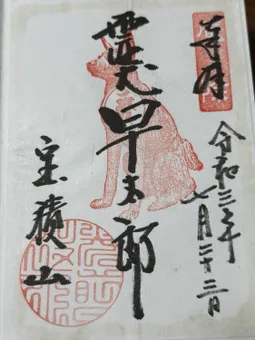 奉拝
令和三年
七月二十三日
霊犬早太郎
宝積山